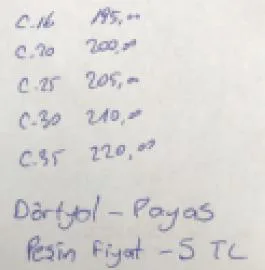 C.16 195,00
C.20 200,00
C.25 205,00
C.30 210,00
C.35 220,00
Dörtyol - Payas
Peşin fiyat - 5 TL